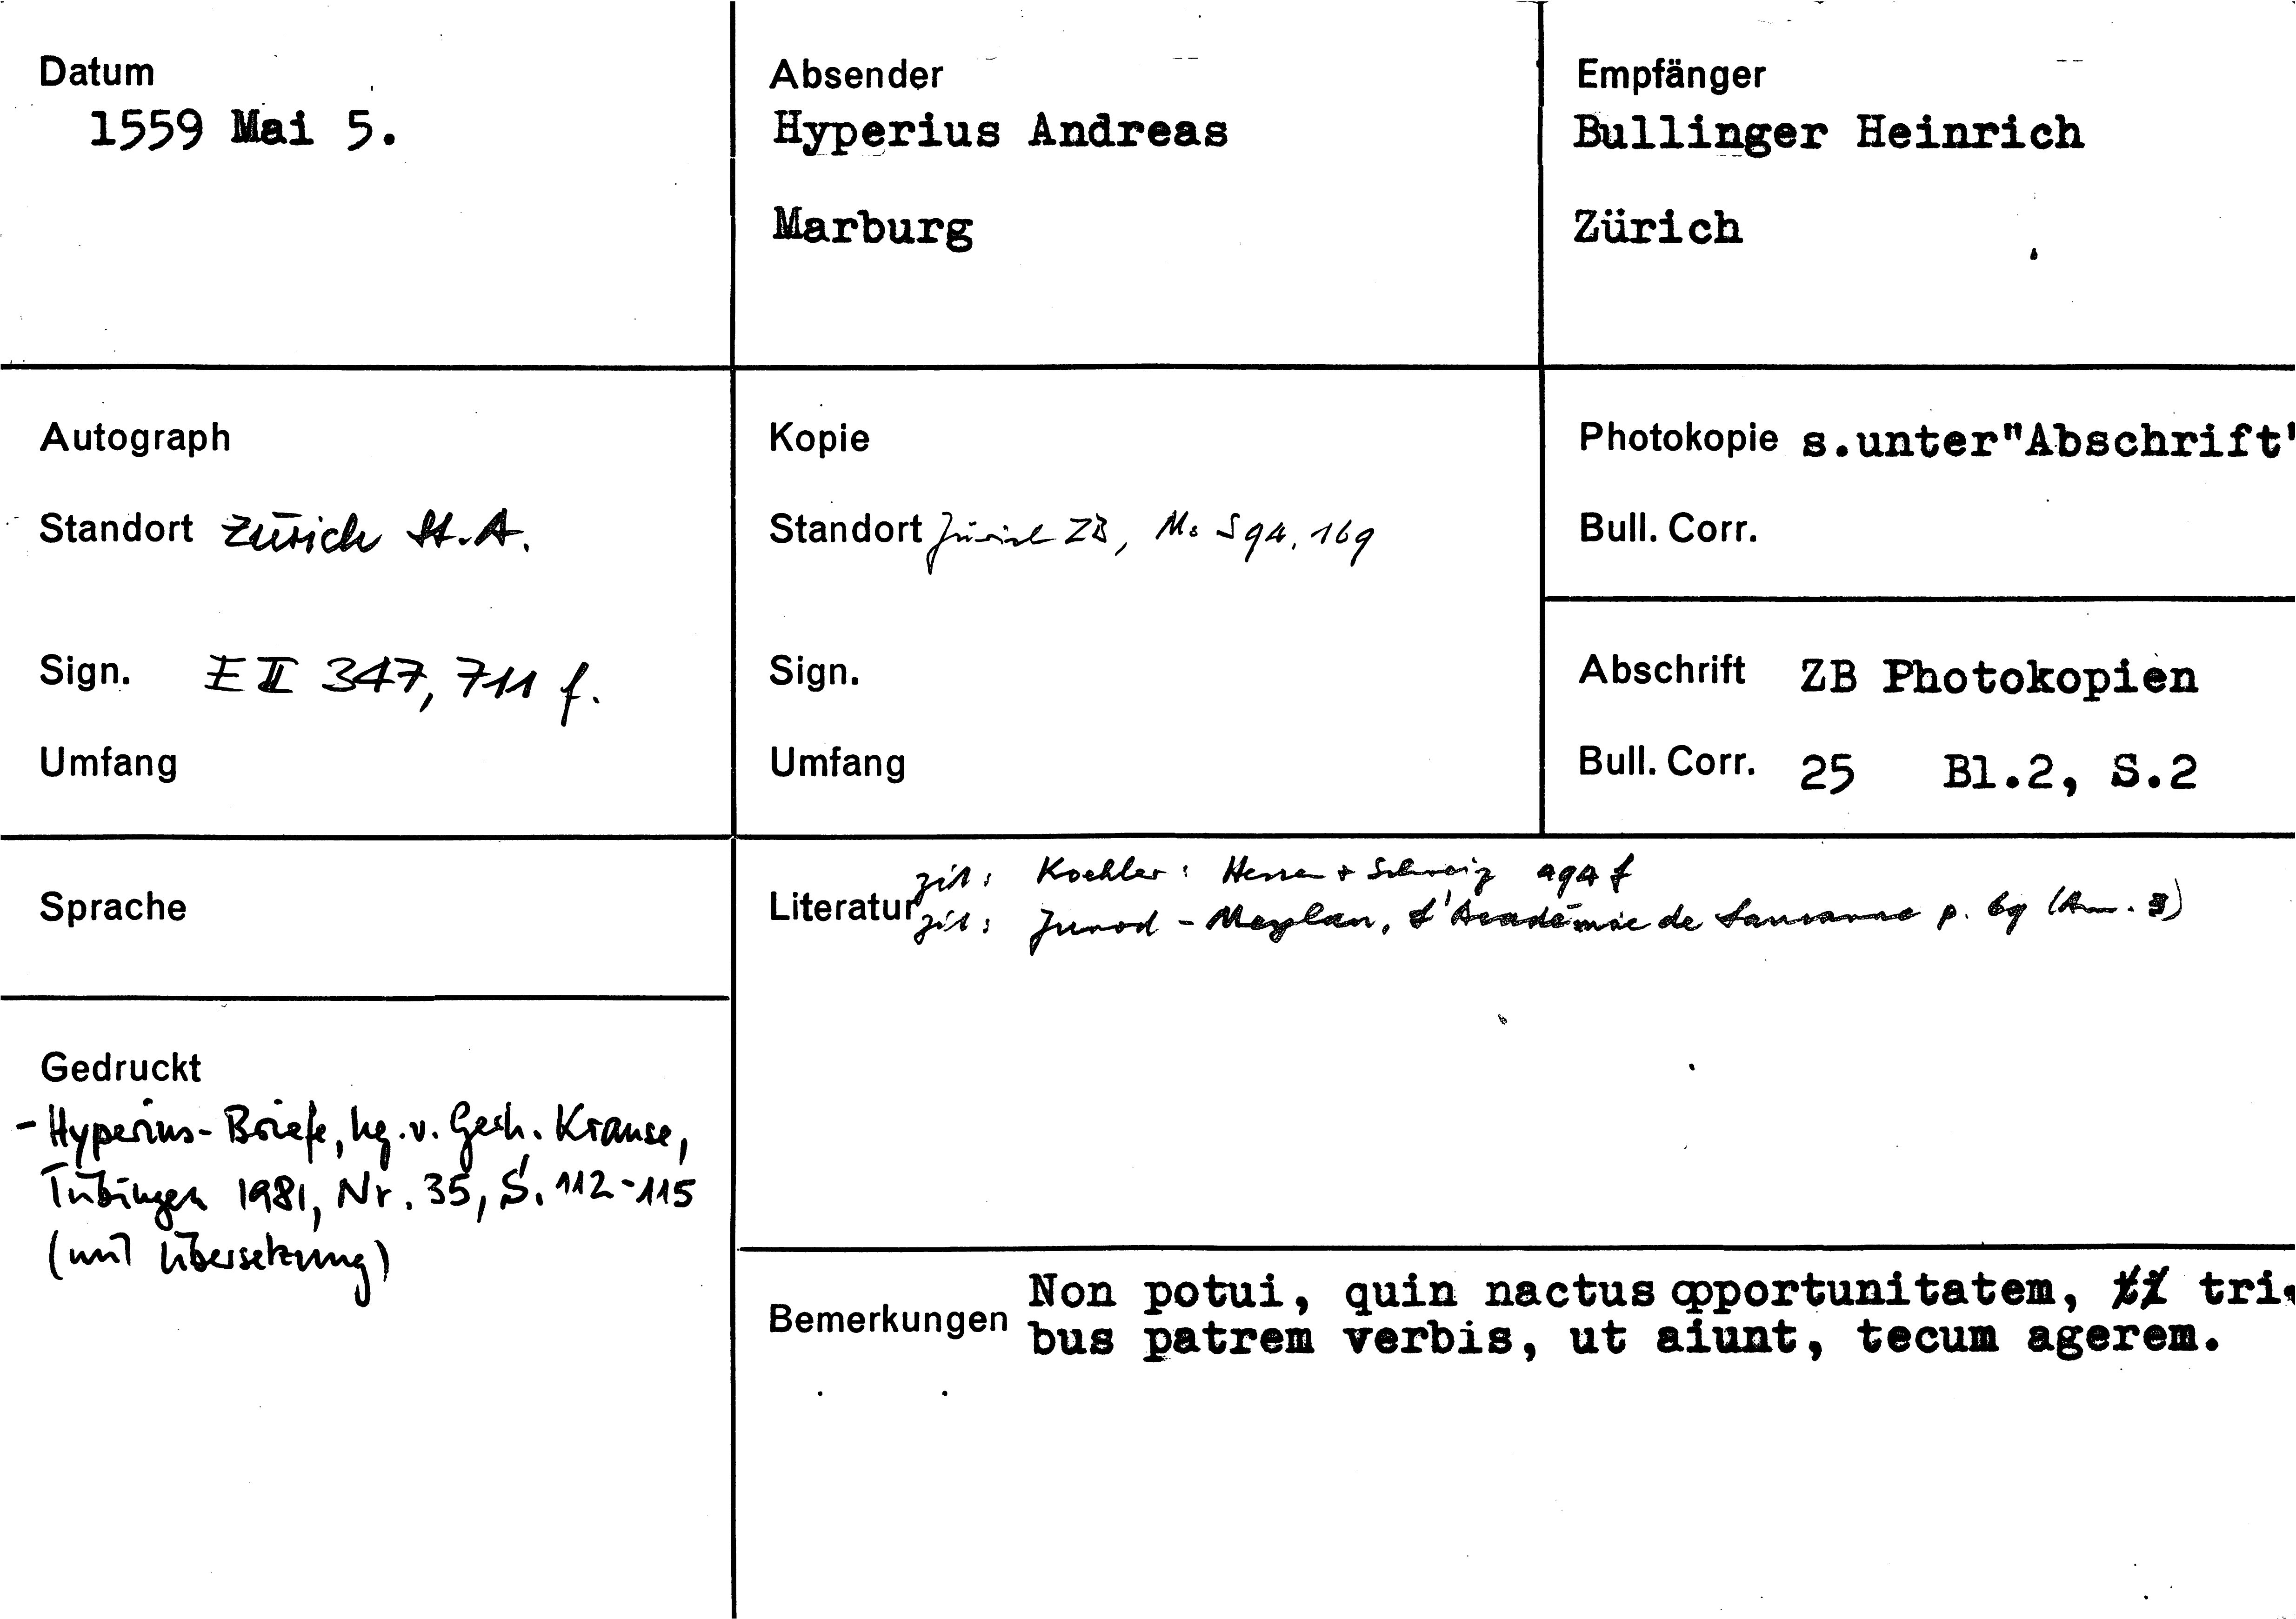 Datum
1559 Mai 5.
Absender
Hyperius Andreas
Marburg
Empfänger
Bullinger Heinrich
Zürich
Autograph
Standort Zürich St.A.
Sign. E II 347, 711 f.
Umfang
Kopie
Standort Zürich ZB, Ms S 94, 169
Sign.
Umfang
Photokopie s.unter"Abschrift"
Bull. Corr.
Abschrift ZB Photokopien
Bull. Corr. 25 Bl.2, S.2
Sprache
Literatur zit: Koehler: Hessen + Schweiz
zit: Junod - Meylan, L'Académie de Lausanne p. 69 (Anm. 3)
Gedruckt
- Hyperius-Briefe, hg. v. Gerh. Krause,
Tübingen 1981, Nr. 35, S. 112-115
(mit Übersetzung)
Bemerkungen Non potui, quin nactus opportunitatem, tri-
bus patrem verbis, ut aiunt, tecum agerem.